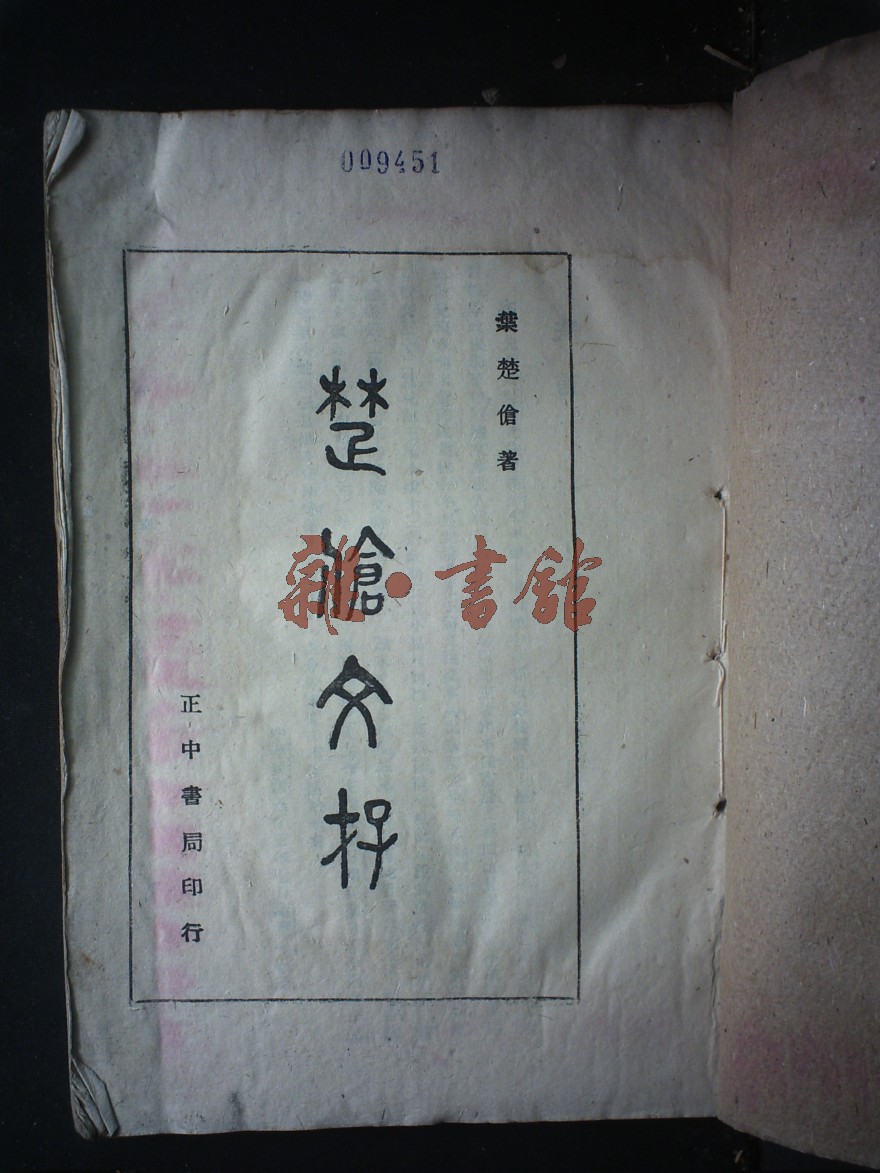 009451
葉楚傖著
楚傖文存
正中書局印行
雜·書館